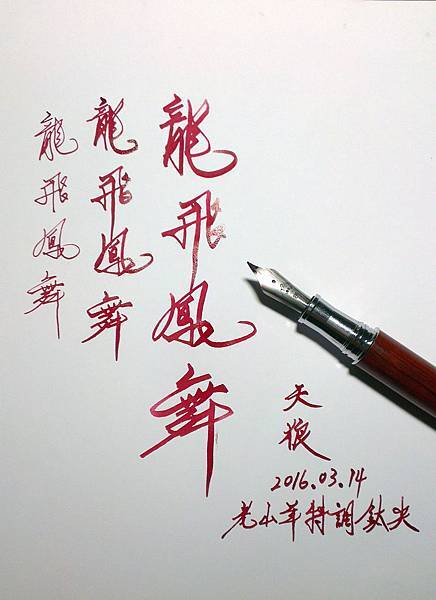 龍飛鳳舞
龍飛鳳舞
龍飛鳳舞
天狼
2016.03.14
老山羊特調鈦尖